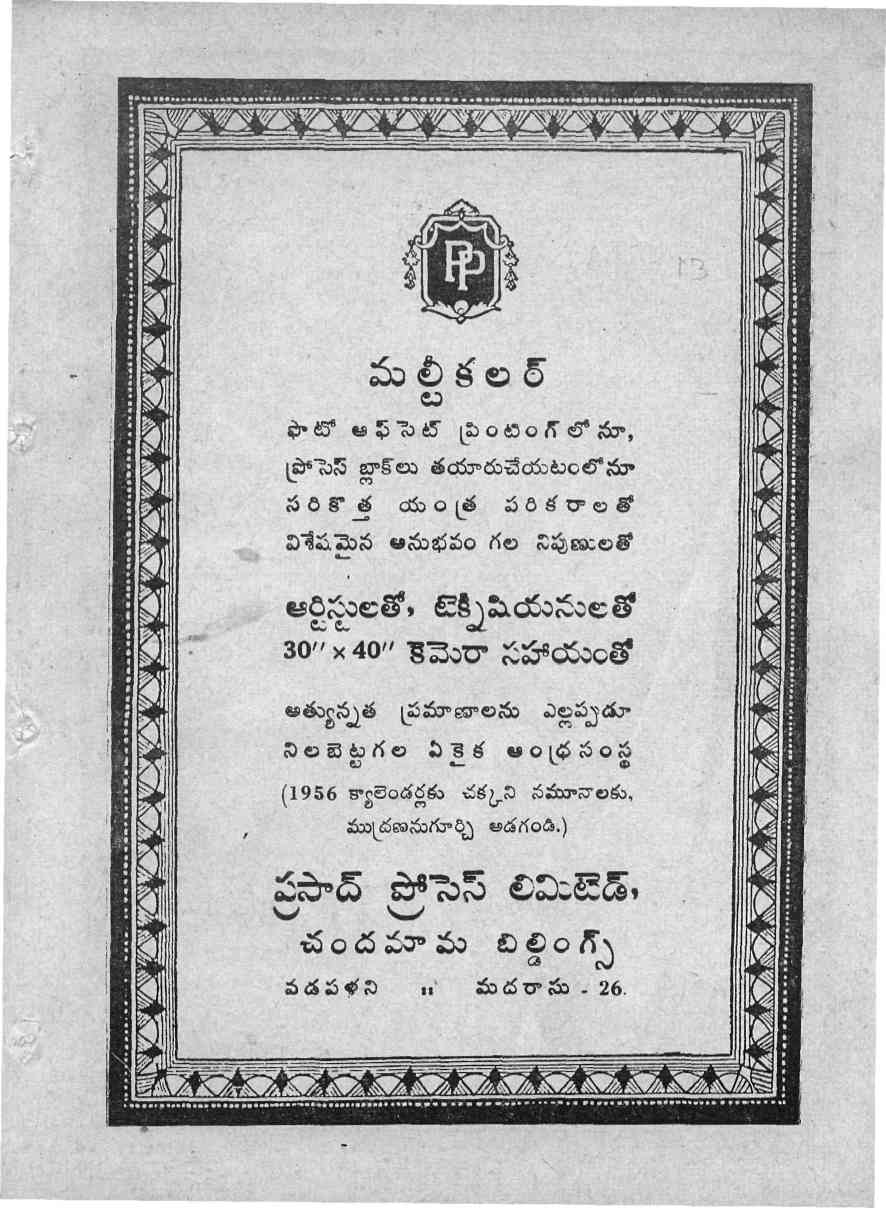 PP
13
మల్టీకలర్
ఫొటో ఆఫ్‌సెట్ ప్రింటింగ్‌లోనూ,
ప్రోసెస్ బ్లాక్‌లు తయారుచేయటంలోనూ
సరికొత్త యంత్ర పరికరాలతో
విశేషమైన అనుభవం గల నిపుణులతో
ఆర్టిస్టులతో, టెక్నీషియనులతో
30″ × 40″ కెమెరా సహాయంతో
అత్యున్నత ప్రమాణాలను ఎల్లప్పుడూ
నిలబెట్టగల ఏకైక ఆంధ్రసంస్థ
(1956 క్యాలెండర్లకు చక్కని నమూనాలకు,
ముద్రణనుగూర్చి అడగండి.)
ప్రసాద్ ప్రోసెస్ లిమిటెడ్,
చందమామ బిల్డింగ్స్
వడపళని :: మదరాసు - 26.